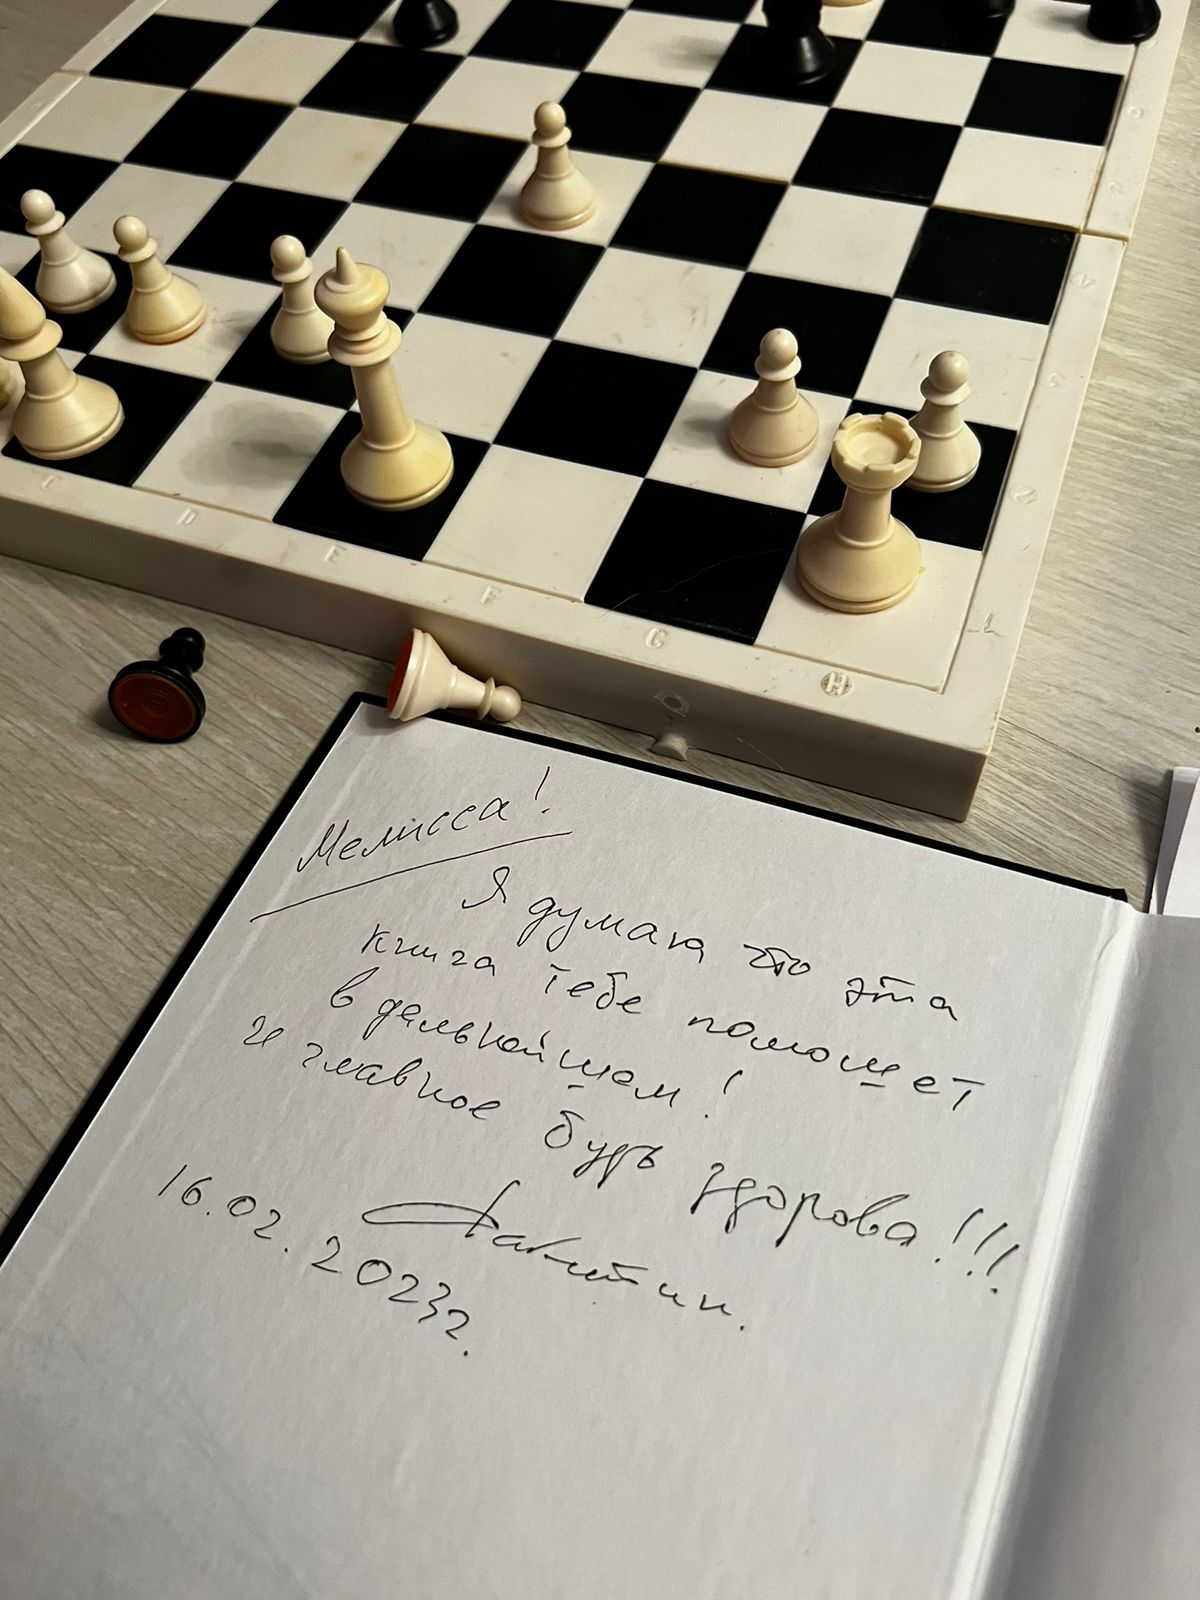 C D E F G H
1
2
3
4
Мелисса!
Я думаю что эта
книга тебе поможет
в дальнейшем!
и главное будь здорова!!!
16.02.2023г.